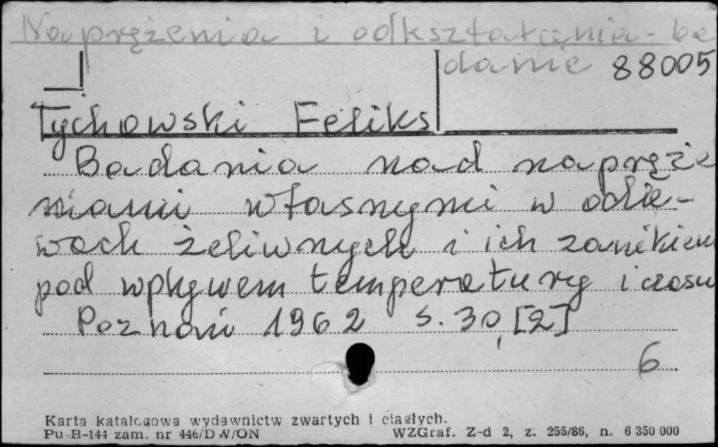 Naprężenia i odkształcenia - ba
danie 88005
Tychowski Feliks
Badania nad napręże
niami własnymi w odle-
wach żeliwnych i ich zanikiem
pod wpływem temperatury i czasu
Poznań 1962 s. 30, [2]
6
Karta katalogowa wydawnictw zwartych i ciągłych.
Pu-B-144 zam. nr 446/D W/ON WZGraf. Z-d 2, z. 255/86, n. 6 350 000